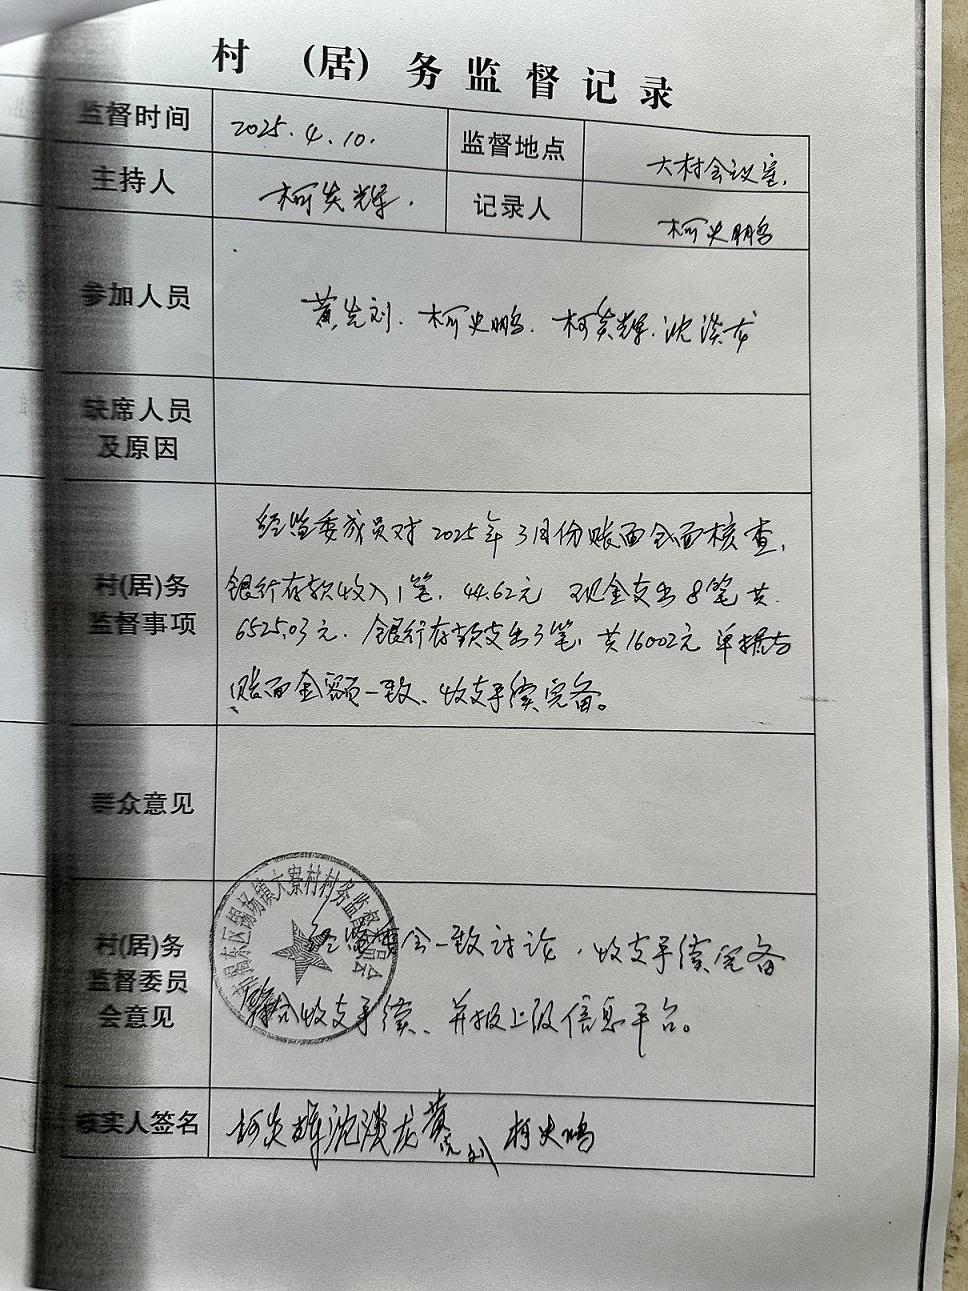 村 （居）务监督记录
监督时间 2025.4.10. 监督地点 大村会议室.
主持人 柯炎辉. 记录人 柯史鹏
参加人员 黄先刘. 柯史鹏. 柯炎辉. 沈淡龙
缺席人员
及原因
村(居)务
监督事项
经监委成员对2025年3月份账面全面核查,
银行存款收入1笔, 44.62元 现金支出8笔共
6525.03元. 银行存款支出3笔, 共16002元 单据与
账面金额一致、收支手续完备。
群众意见
村(居)务
监督委员
会意见
揭东区锡场镇大寮村村务监督委员会
会一致讨论，收支手续完备
符合收支手续、并报上级信息平台。
核实人签名 柯炎辉 沈淡龙 黄先刘 柯史鹏